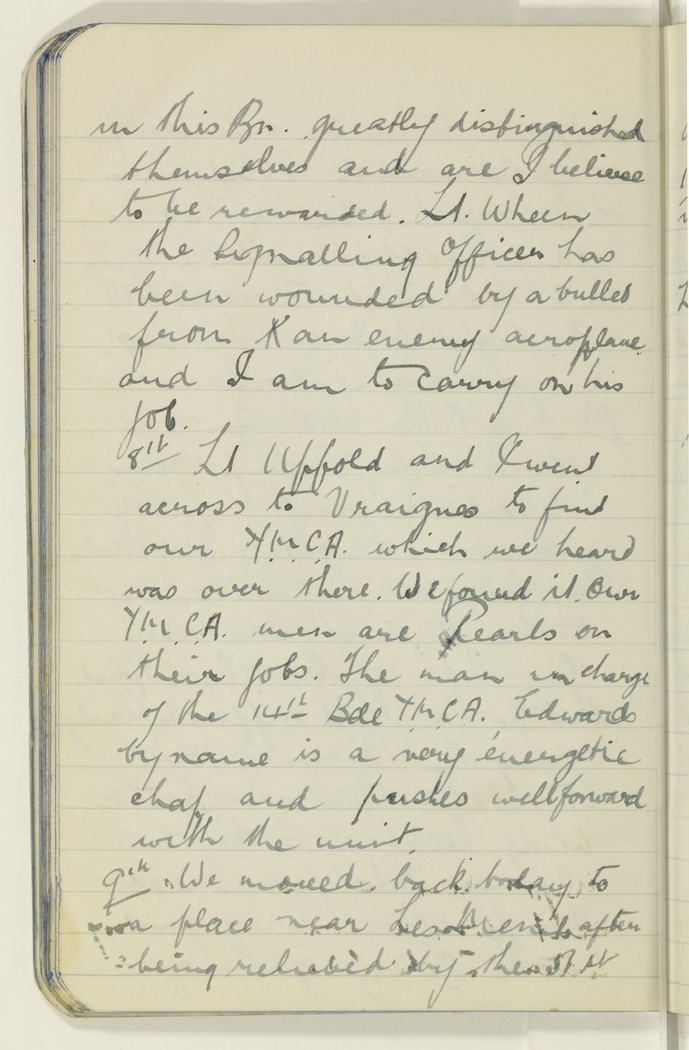 in this Bn. greatly distinguished
themselves and are I believe
to be rewarded. Lt. Wheen
the Signalling Officer has
been wounded by a bullet
from an enemy aeroplane
and I am to carry on his
job.
8th Lt Uffold and I went
across to Vraignes to find
our YMCA. which we heard
was over there. We found it. Our
YMCA. men are pearls on
their jobs. The man in charge
of the 14th Bde YMCA. Edwards
by name is a very energetic
chap and pushes well forward
with the unit.
9th We moved back today to
a place near after
being relieved by the